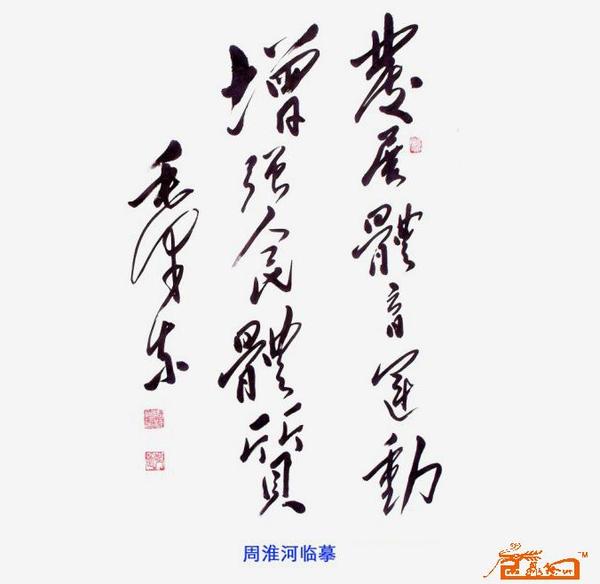 發展體育運動
增强人民體質
毛澤东
周淮河临摹
TM